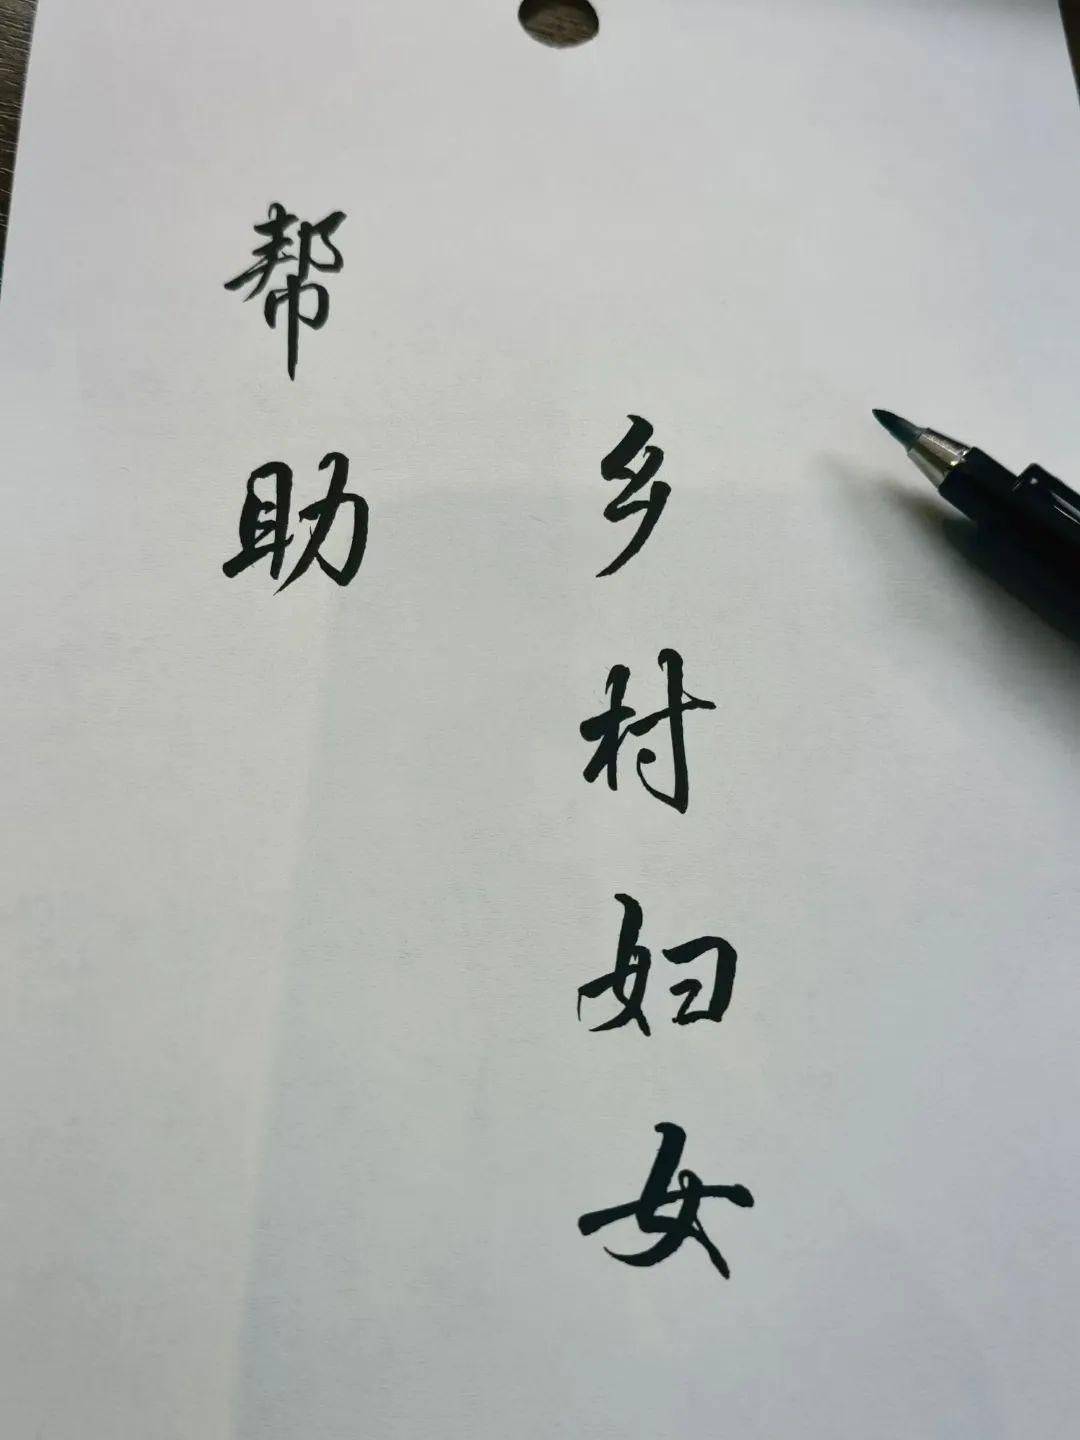 帮助
乡村妇女